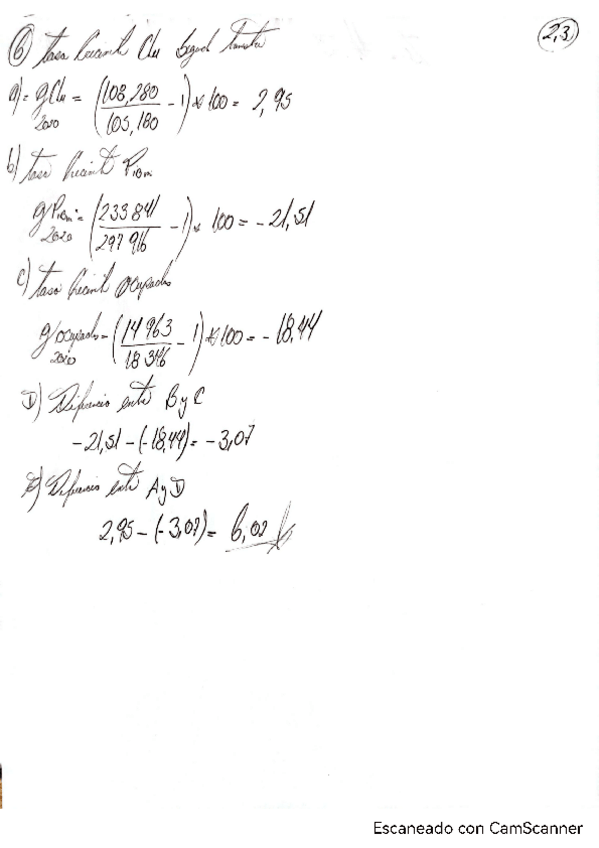 2,3
6) Tasa Crecient Clu Segund trimestre
a) = gClu 2020 = (108,280 / 105,180 - 1) * 100 = 2,95
b) Tasa Crecient PIBm
gPIBm 2020 = (233 841 / 297 916 - 1) * 100 = - 21,51
c) Tasa Crecient Ocupados
g/ocupados 2020 = (14 963 / 18 346 - 1) * 100 = - 18,44
D) Diferencia entre B y C
-21,51 - (-18,44) = -3,07
E) Diferencia entre A y D
2,95 - (-3,07) = 6,02
Escaneado con CamScanner